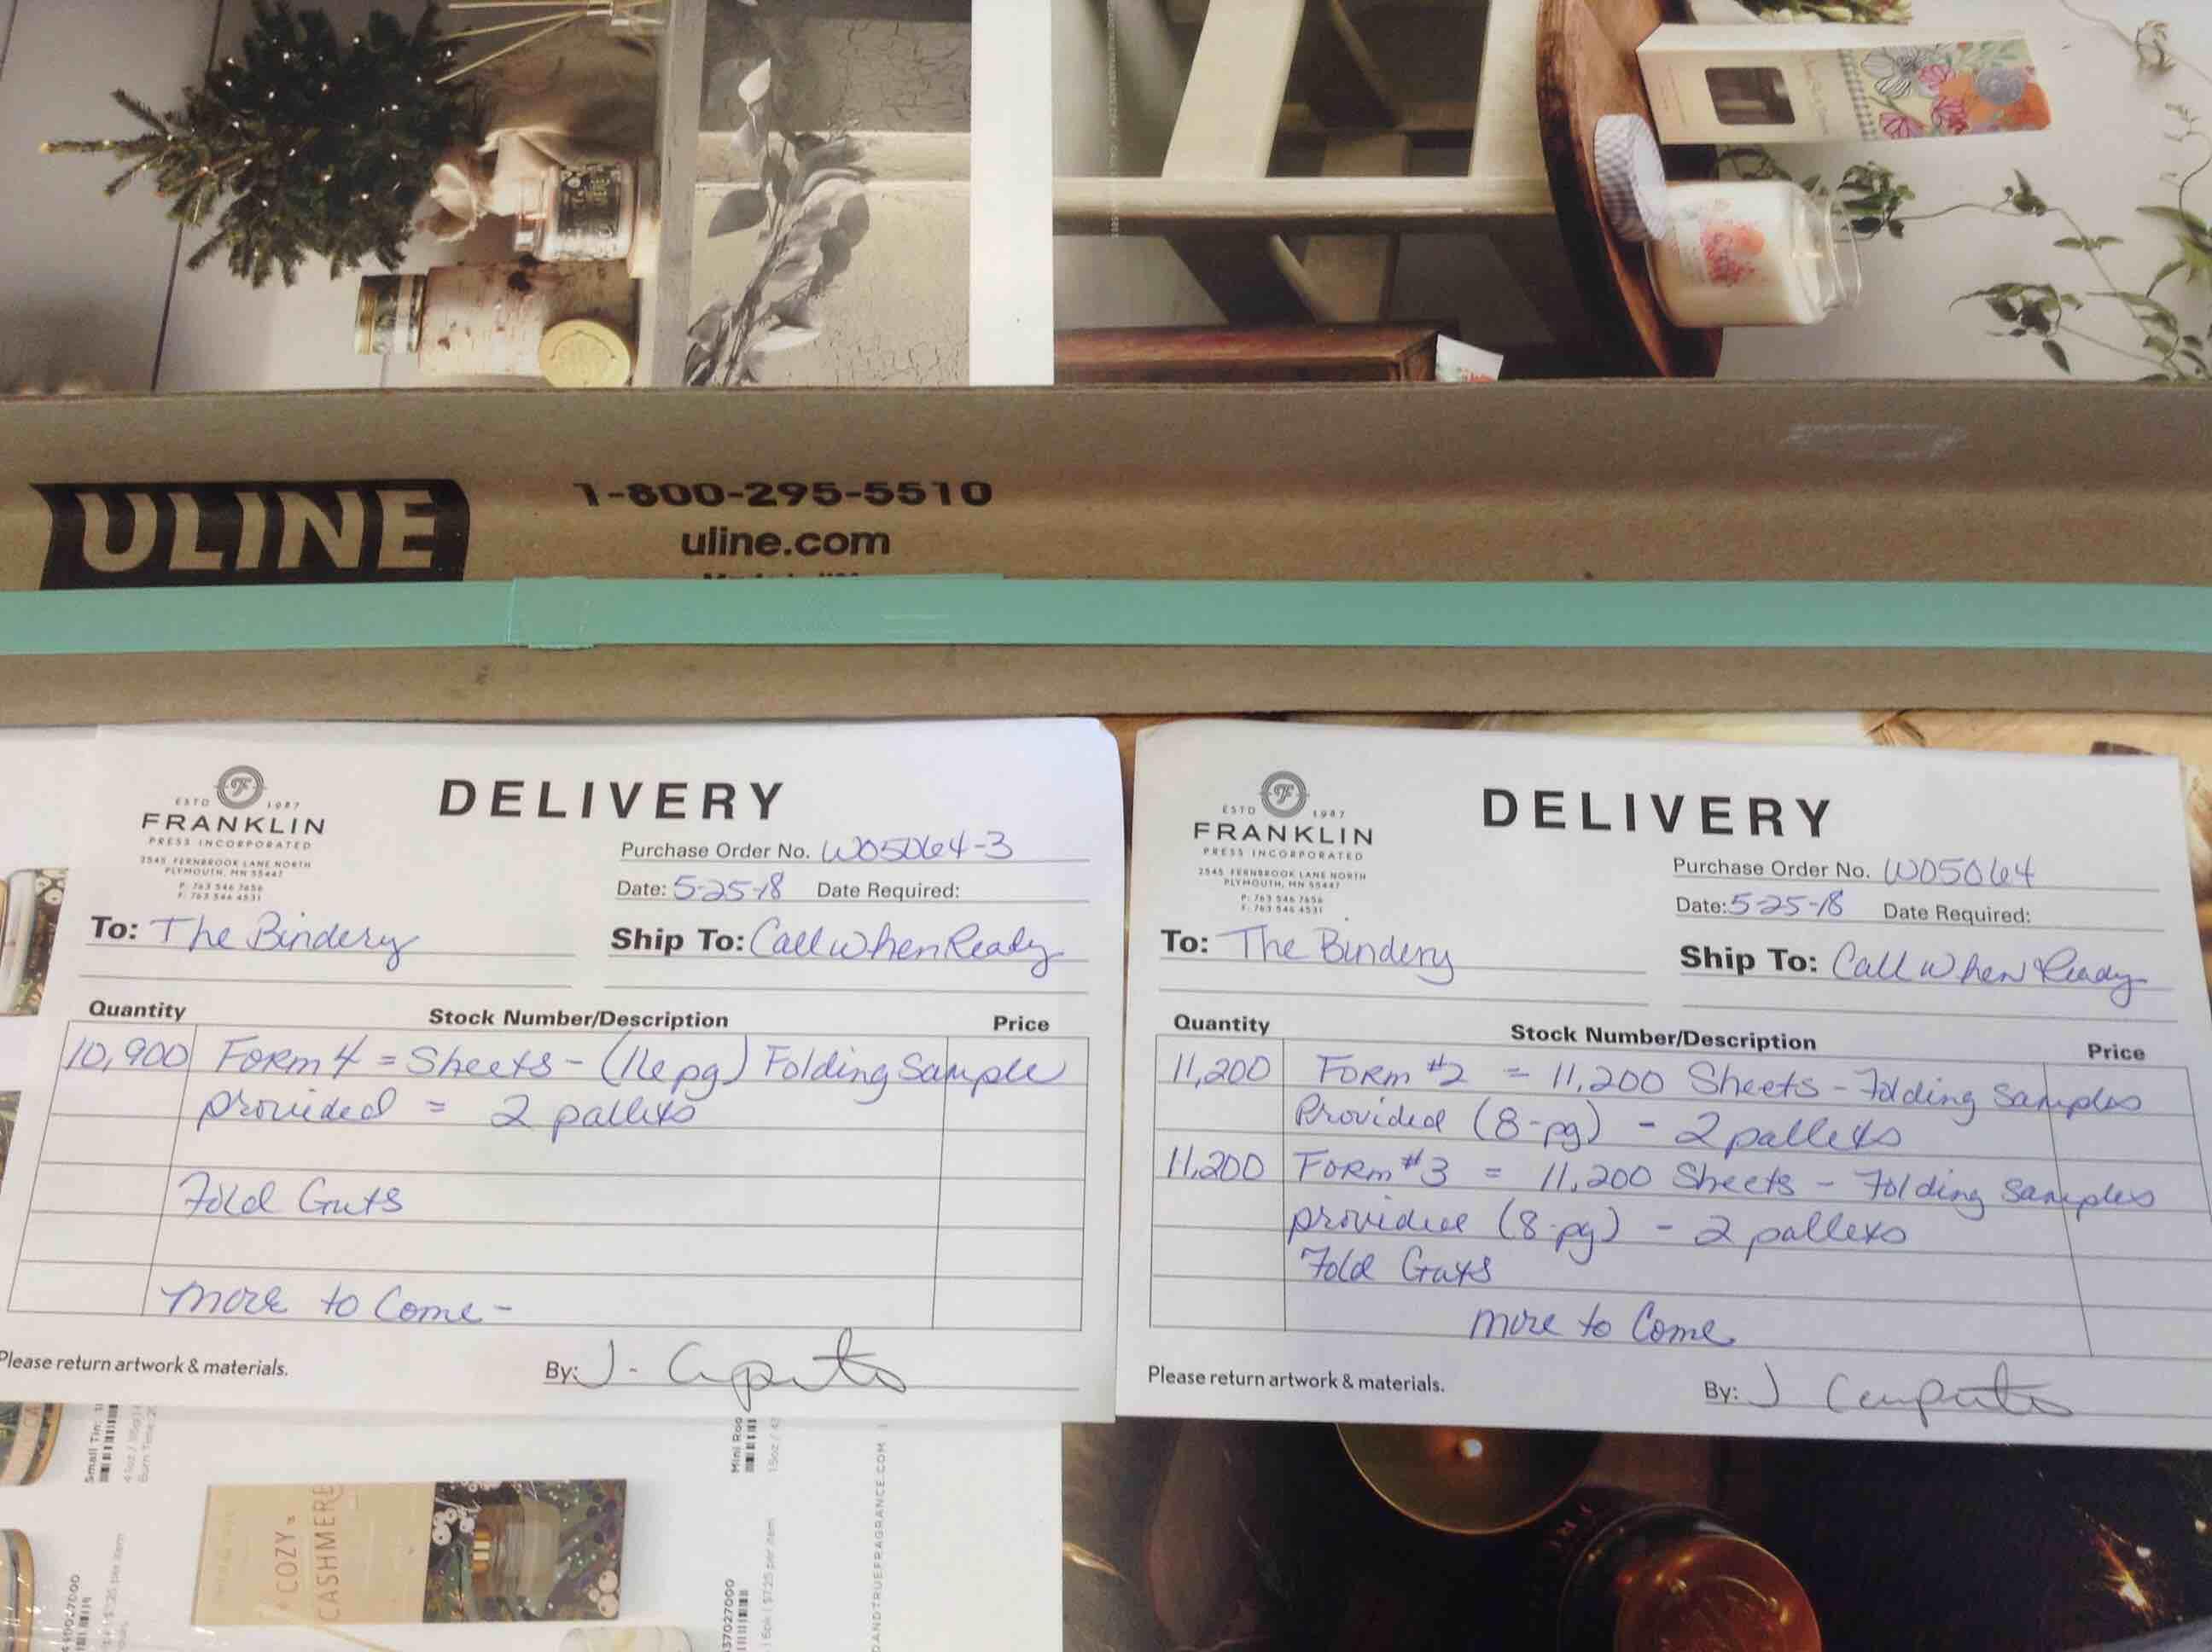 ULINE
1-800-295-5510
uline.com
ESTD 1987
FRANKLIN
PRESS INCORPORATED
2545 FERNBROOK LANE NORTH
PLYMOUTH, MN 55447
P: 763 546 7656
F: 763 546 4531
DELIVERY
Purchase Order No. W05064-3
Date: 5-25-18 Date Required:
To: The Bindery
Ship To: Call when Ready
Quantity Stock Number/Description Price
10,900 Form 4 = Sheets - (16 pg) Folding Sample
provided = 2 pallets
Fold Guts
more to Come -
Please return artwork & materials.
By: J. Caputo
ESTD 1987
FRANKLIN
PRESS INCORPORATED
2545 FERNBROOK LANE NORTH
PLYMOUTH, MN 55447
P: 763 546 7656
F: 763 546 4531
DELIVERY
Purchase Order No. W05064
Date: 5-25-18 Date Required:
To: The Bindery
Ship To: Call when Ready
Quantity Stock Number/Description Price
11,200 Form #2 = 11,200 Sheets - Folding Samples
Provided (8-pg) - 2 pallets
11,200 Form #3 = 11,200 Sheets - Folding Samples
provided (8-pg) - 2 pallets
Fold Guts
more to Come
Please return artwork & materials.
By: J Caputo
Small Tin:
Mini Roo
COZY
CASHMERE
ANDTRUEFRAGRANCE.COM
37027000
6pk | $7.25 per item